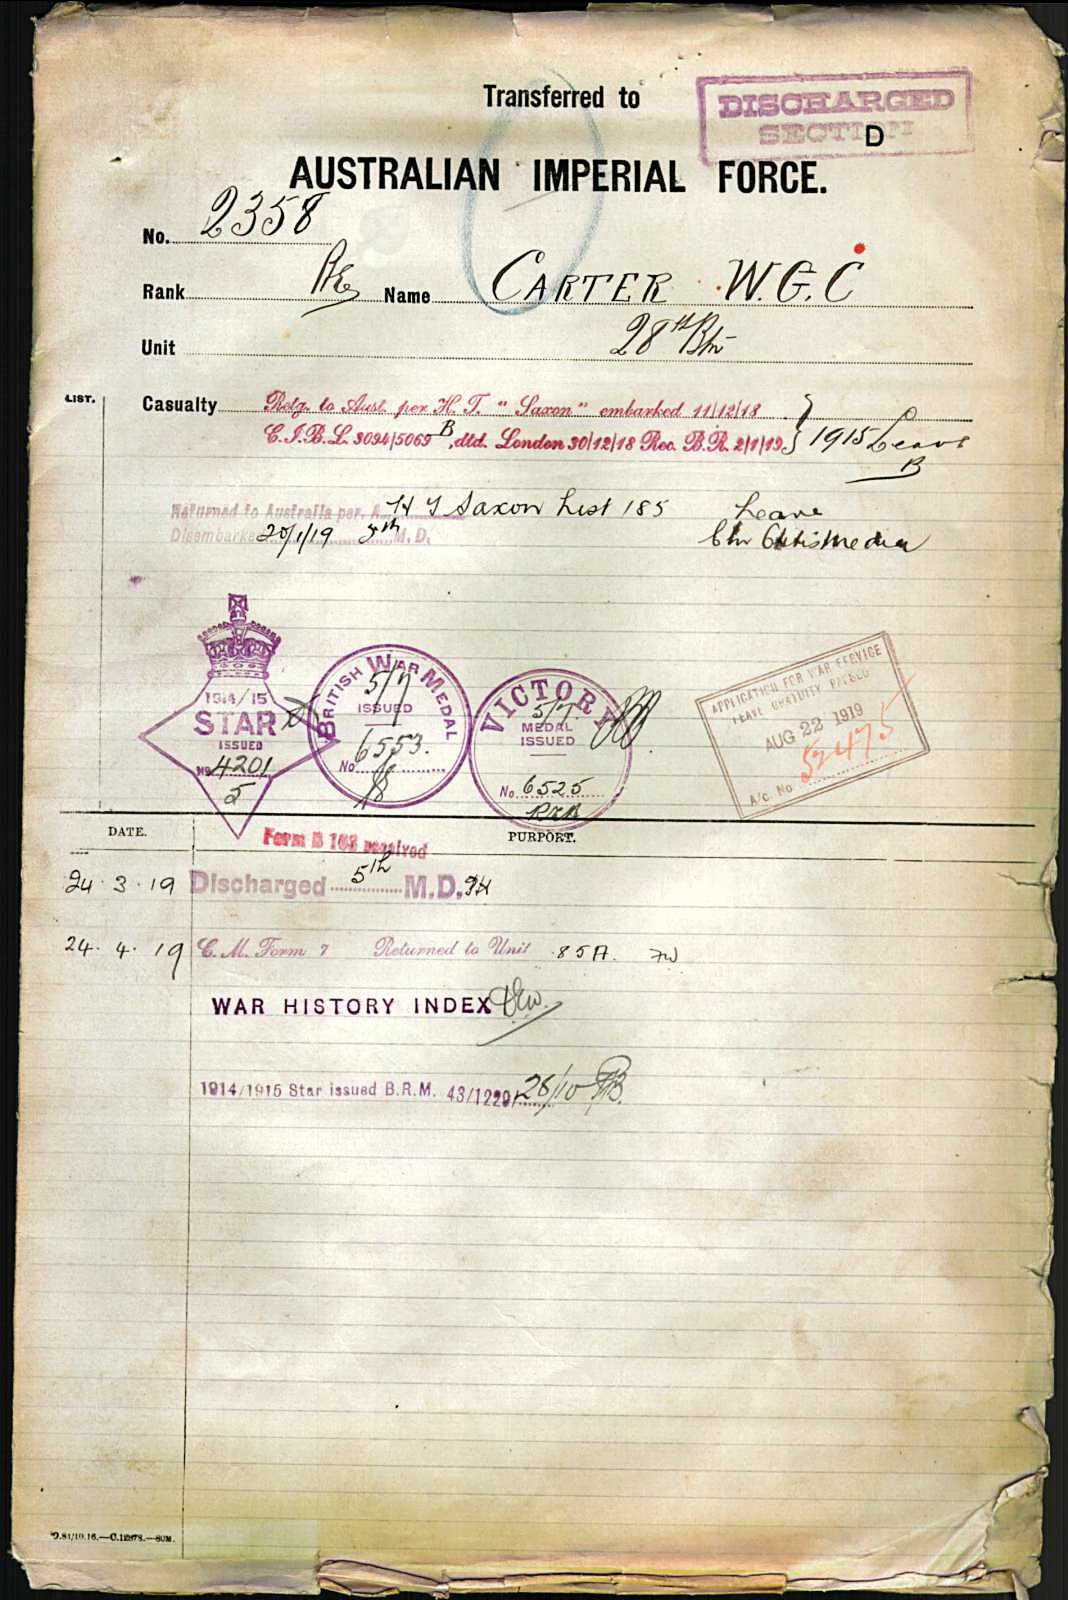 Transferred to
DISCHARGED
SECTION
D
AUSTRALIAN IMPERIAL FORCE.
No. 2358
Rank Pte Name CARTER W.G.C
Unit 28th Btn
LIST.
Casualty Retg. to Aust. per H. T. "Saxon" embarked 11/12/18
C.I.B.L. 3094/5069 B, dtd. London 30/12/18 Rec. B.R. 2/1/19 1915 Leave
B
Returned to Australia per. H T Saxon List 185 Leave
Disembarked 20/1/19 5th M.D.
1914/15
STAR
ISSUED
No 4201
5
BRITISH WAR MEDAL
5/7
ISSUED
No 6553.
VICTORY
5/7.
MEDAL
ISSUED
No. 6525
APPLICATION FOR WAR SERVICE
LEAVE GRATUITY PASSED
AUG 22 1919
A/c. No 52475
DATE. PURPORT.
Form B 103 received
24.3.19 Discharged 5th M.D.
24.4.19 C.M. Form 7 Returned to Unit 85A.
WAR HISTORY INDEX
1914/1915 Star issued B.R.M. 43/1229 28/10